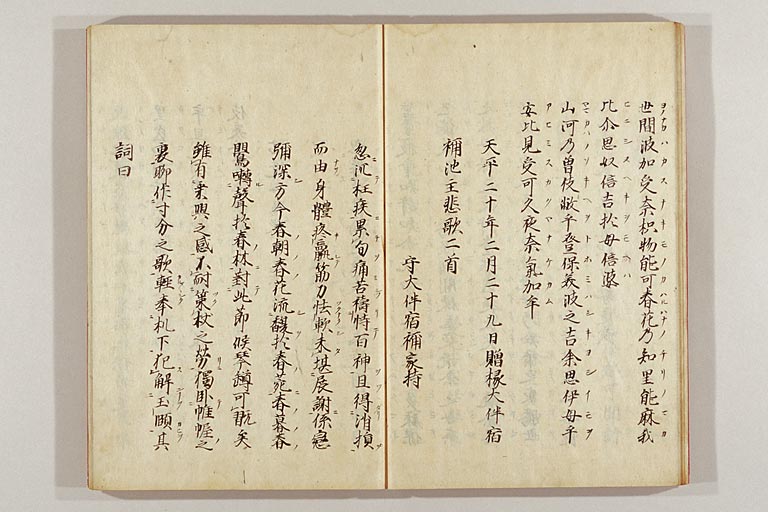 世間波加受奈枳物能可春花乃知里能麻我
比尓思奴倍吉於母倍婆
山河乃曽伎敝乎登保美波之吉余思伊母乎
安比見受可久夜奈氣加牟
天平二十年二月二十九日贈掾大伴宿
祢池主悲歌二首
守大伴宿祢家持
忽沉枉疾累旬痛苦禱恃百神且得消損
而由身體疼羸筋力怯軟未堪展謝係戀
彌深方今春朝春花流馥於春苑春暮春
鸎囀聲於春林對此節候琴罇可翫矣
雖有乗興之感不耐策杖之勞獨臥帷幄之
裏聊作寸分之歌輕奉机下犯解玉頤其
詞曰